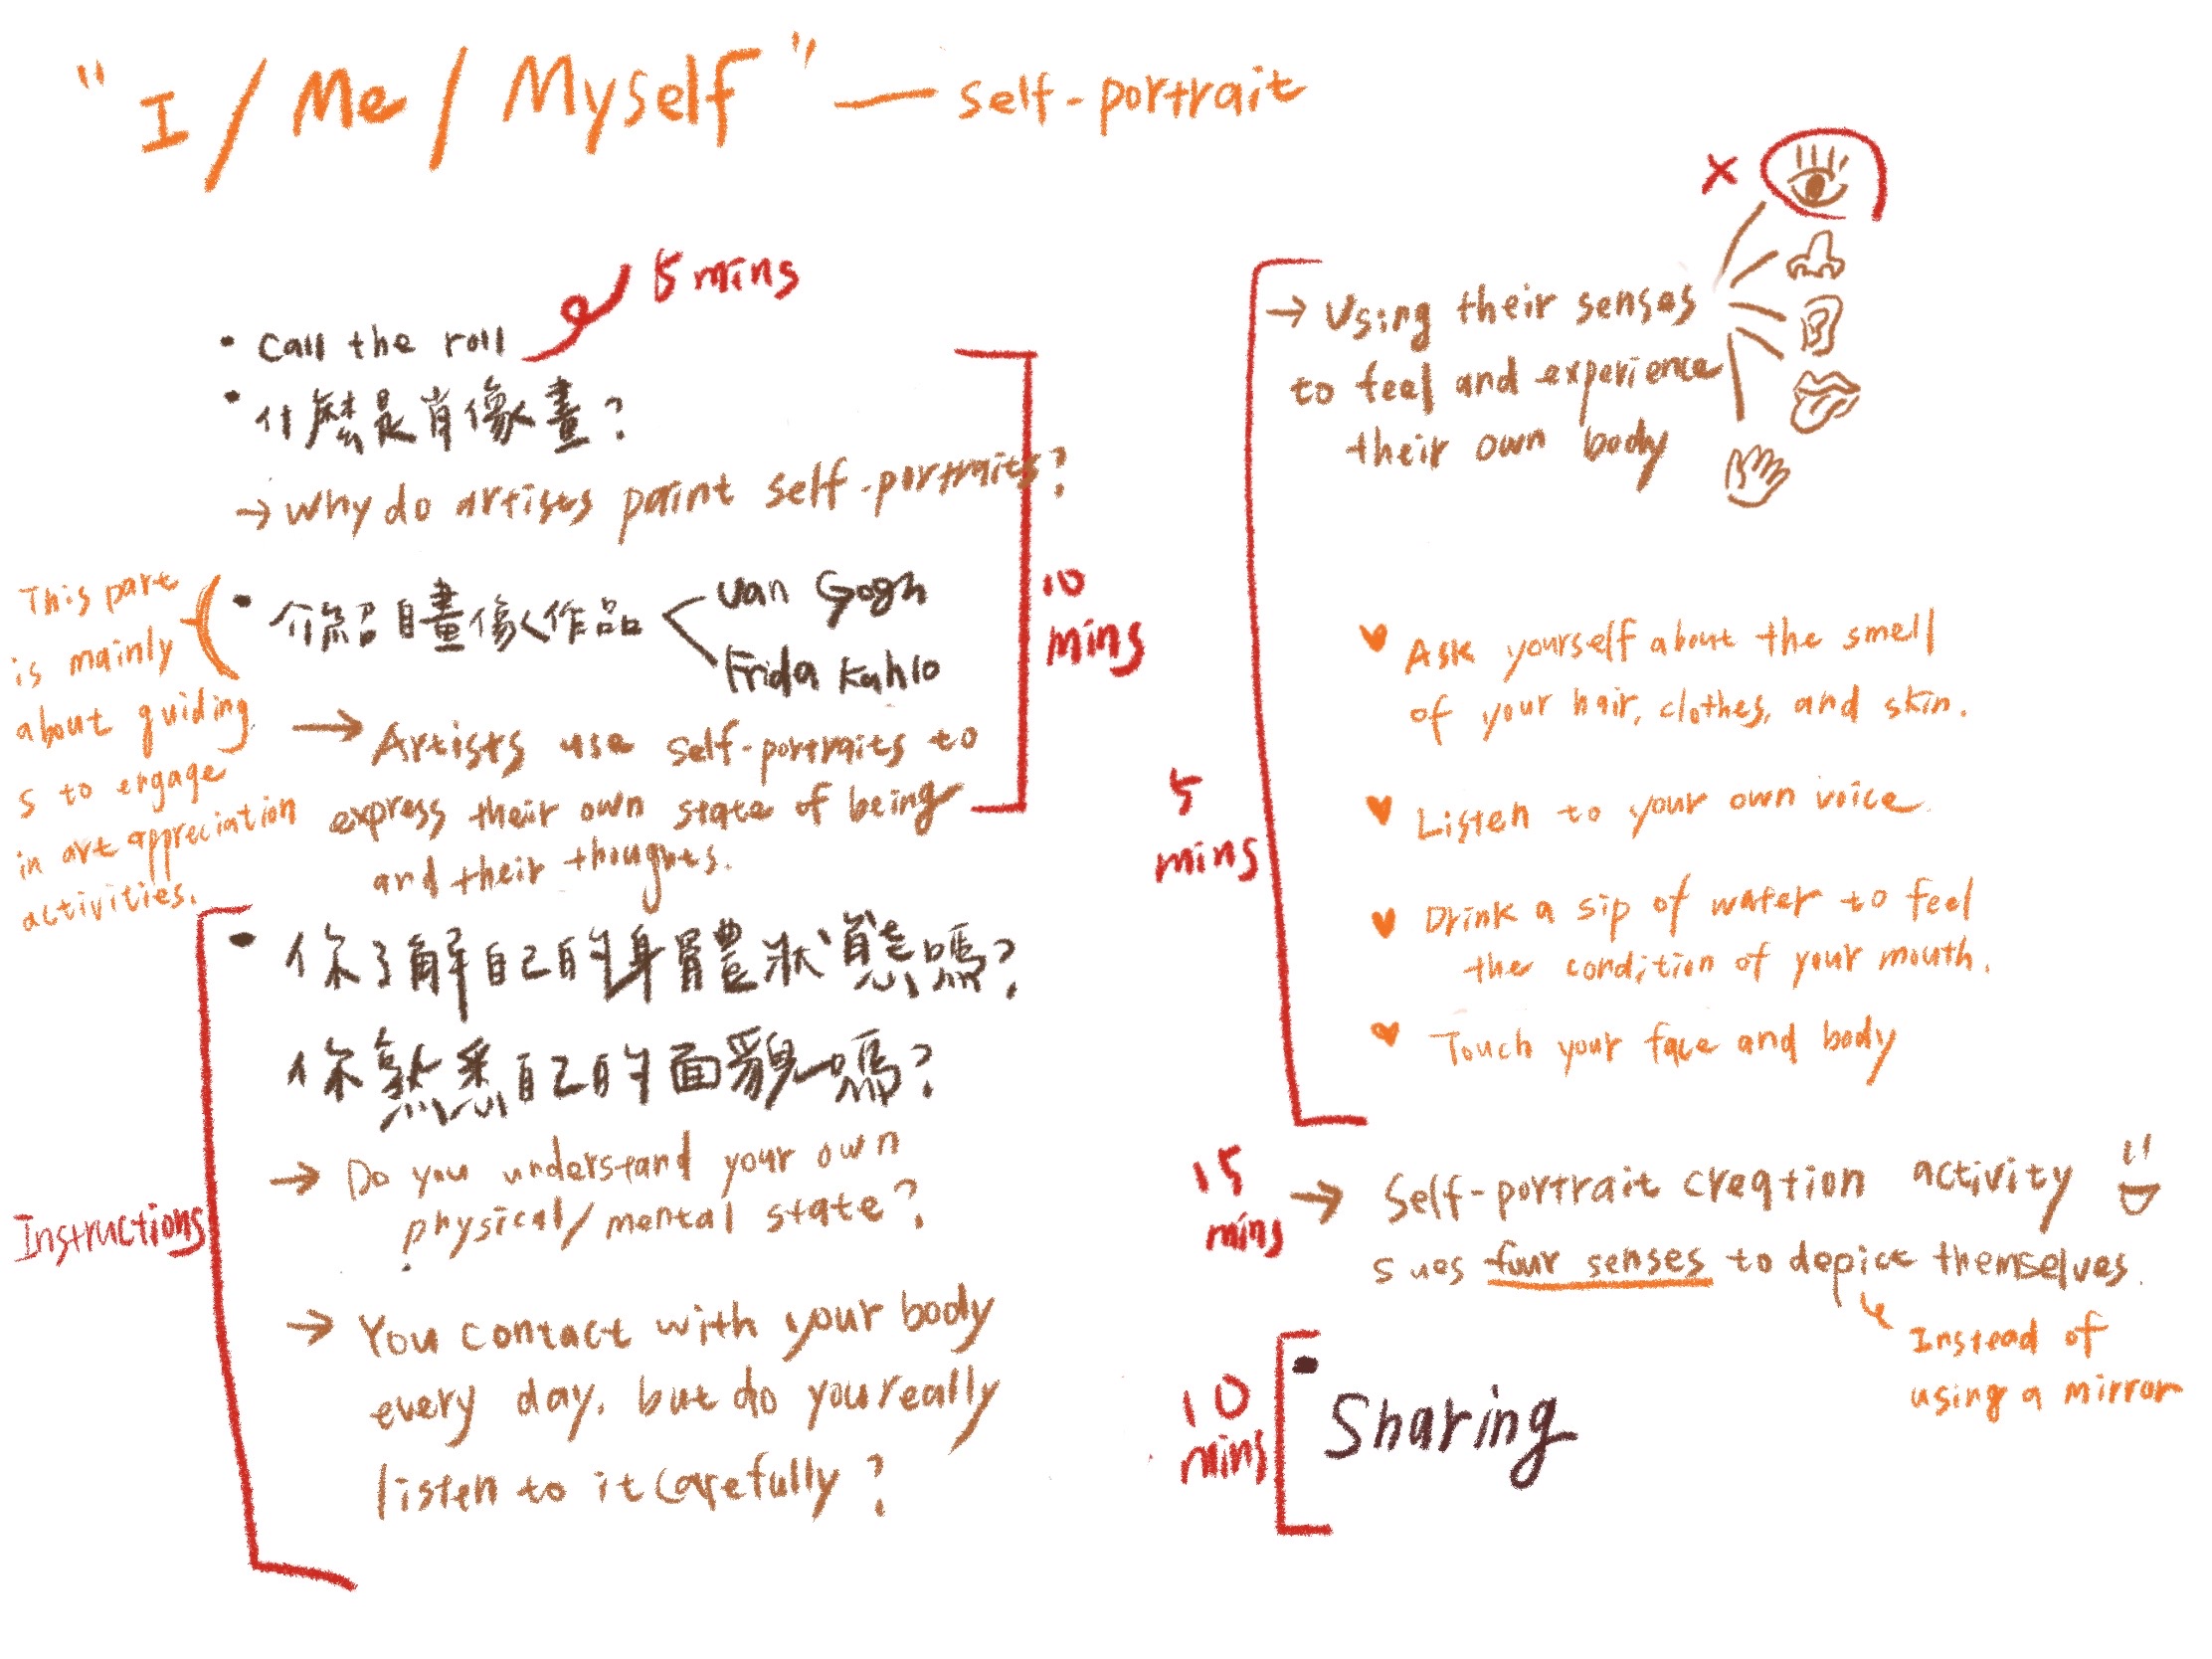 "I / Me / Myself" — self-portrait
• Call the roll
5 mins
• 什麼是肖像畫?
→ Why do artists paint self-portraits?
• 介紹自畫像作品
Van Gogh
Frida Kahlo
→ Artists use self-portraits to
express their own state of being
and their thoughts.
10
mins
This part
is mainly
about guiding
s to engage
in art appreciation
activities.
Instructions
• 你了解自己的身體狀態嗎?
你熟悉自己的面貌嗎?
→ Do you understand your own
physical/mental state?
→ You contact with your body
every day, but do you really
listen to it carefully?
5
mins
→ Using their senses
to feel and experience
their own body
×
♥ Ask yourself about the smell
of your hair, clothes, and skin.
♥ Listen to your own voice.
♥ Drink a sip of water to feel
the condition of your mouth.
♥ Touch your face and body
15
mins
→ Self-portrait creation activity
s ues four senses to depict themselves.
Instead of
using a mirror
10
mins
• Sharing